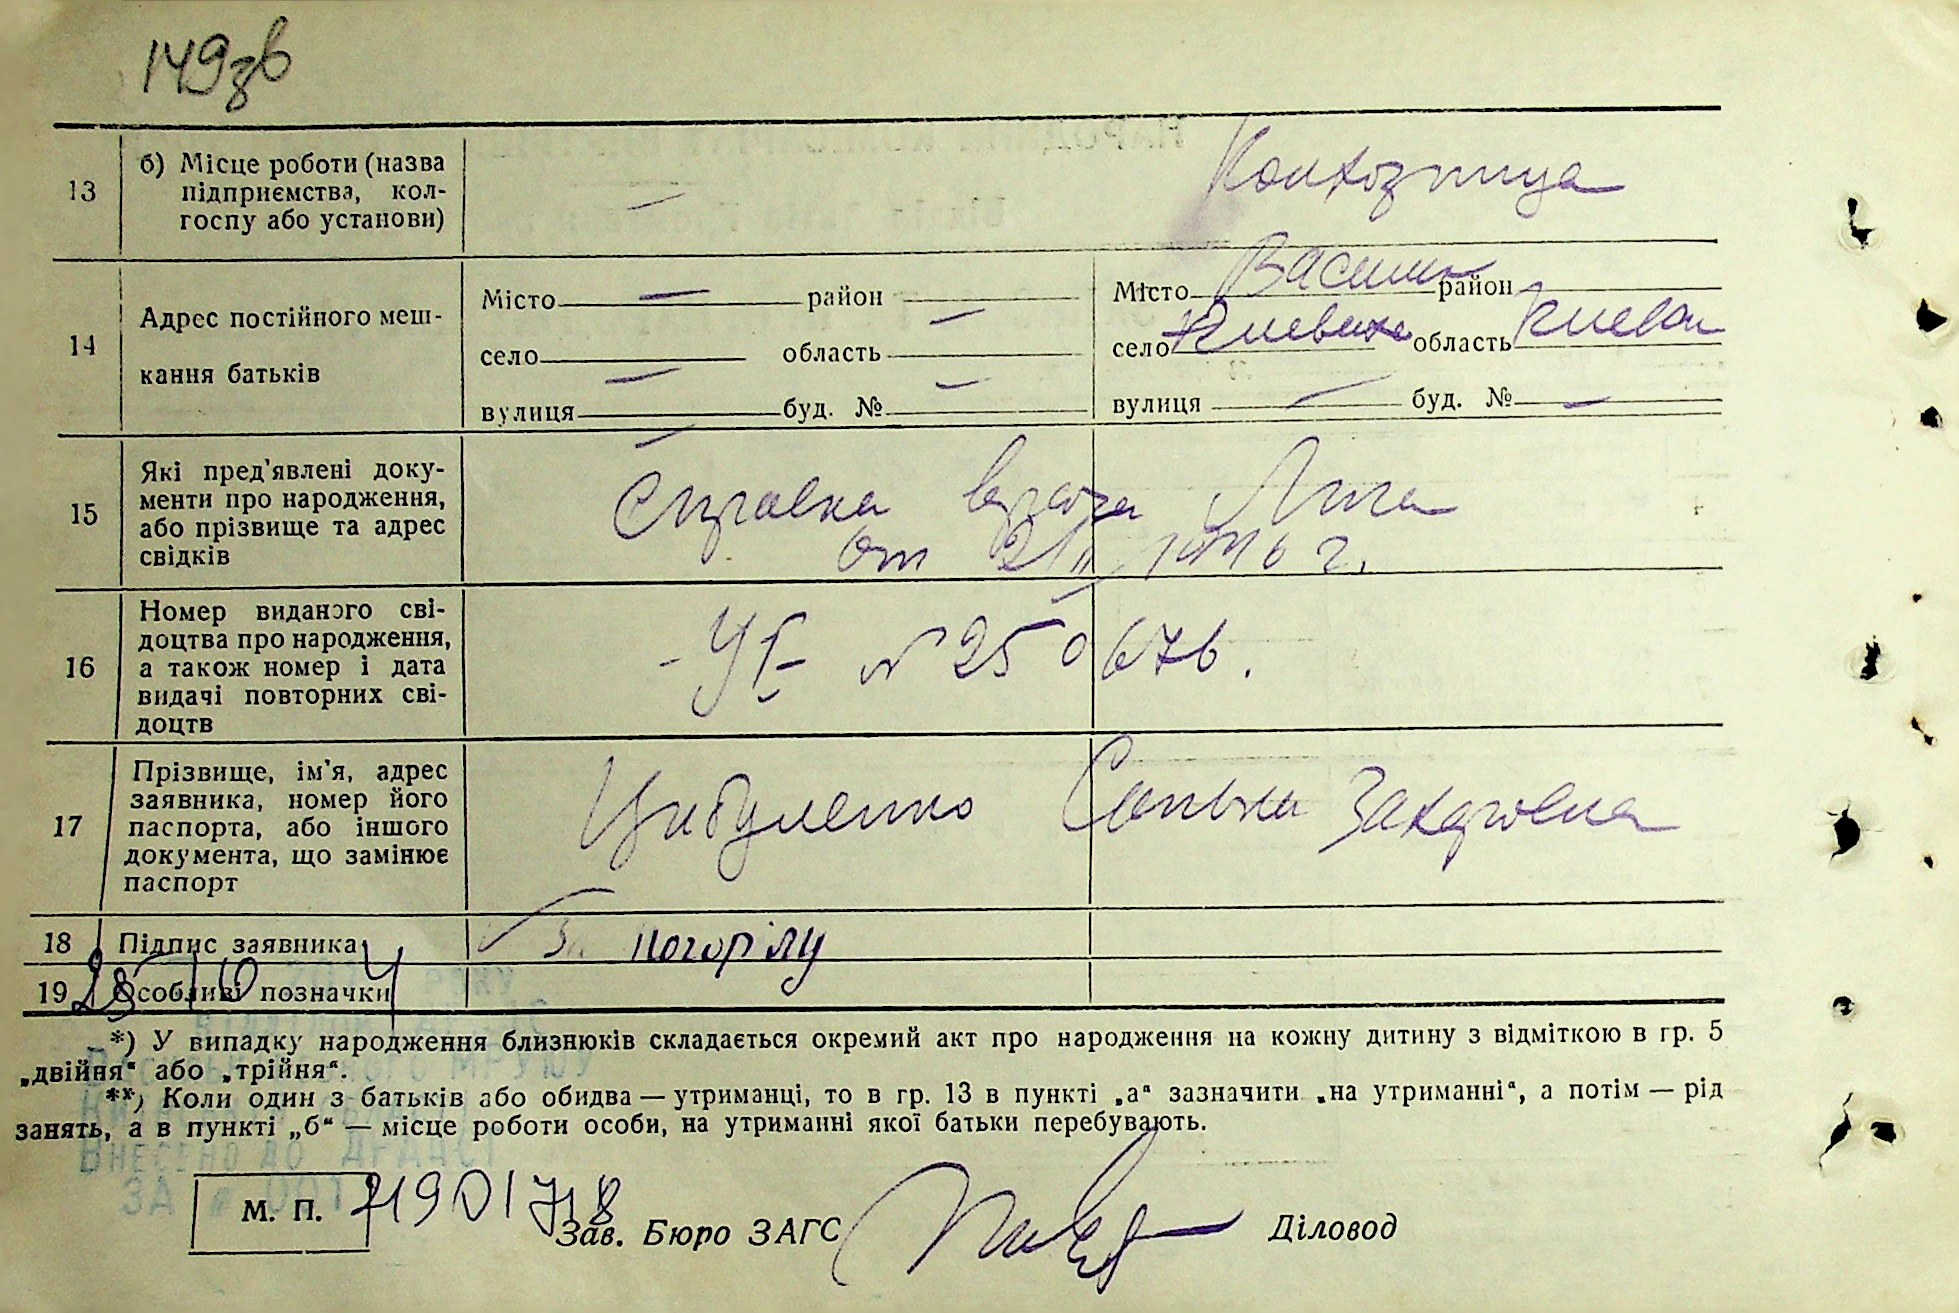 149зв
13 б) Місце роботи (назва
підприємства, кол-
госпу або установи) — Колхозница
14 Адрес постійного меш-
кання батьків
Місто — район —
село — область —
вулиця — буд. № —
Місто Васильк район
село область Киевск
вулиця — буд. № —
15 Які пред'явлені доку-
менти про народження,
або прізвище та адрес
свідків
Справка врача
от 1946 г.
16 Номер виданого сві-
доцтва про народження,
а також номер і дата
видачі повторних сві-
доцтв
№ 250676.
17 Прізвище, ім'я, адрес
заявника, номер його
паспорта, або іншого
документа, що замінює
паспорт
Цибуленко Захаровна
18 Підпис заявника Погорілу
19 Особливі позначки
28 10 року
*) У випадку народження близнюків складається окремий акт про народження на кожну дитину з відміткою в гр. 5
„двійня“ або „трійня“.
**) Коли один з батьків або обидва — утриманці, то в гр. 13 в пункті „а“ зазначити „на утриманні“, а потім — рід
занять, а в пункті „б“ — місце роботи особи, на утриманні якої батьки перебувають.
Внесено до ДРАЦСГ
За № 00171901718
М. П. Зав. Бюро ЗАГС Діловод